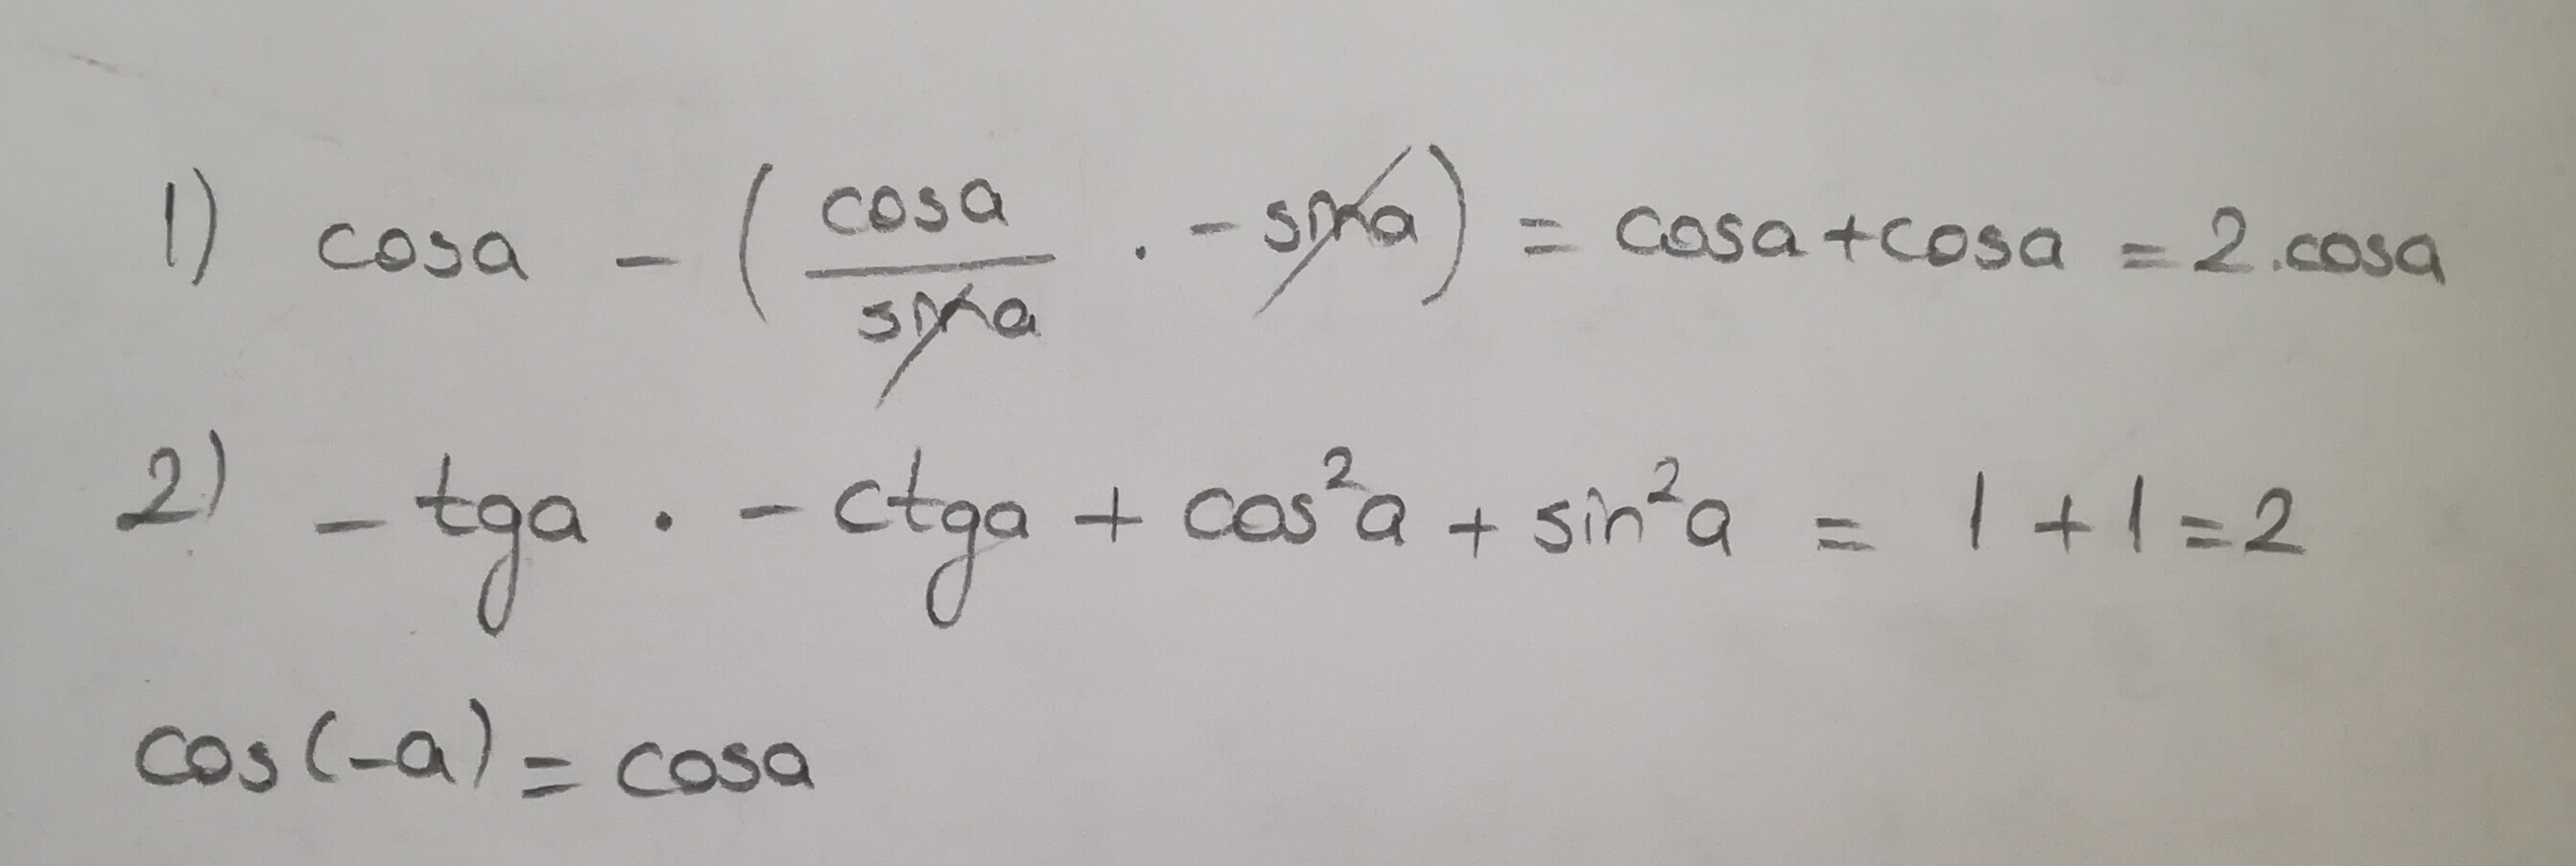 1) cosa - (cosa/sina . - sina) = cosa+cosa = 2.cosa
2) - tga . - ctga + cos²a + sin²a = 1+1=2
cos(-a) = cosa